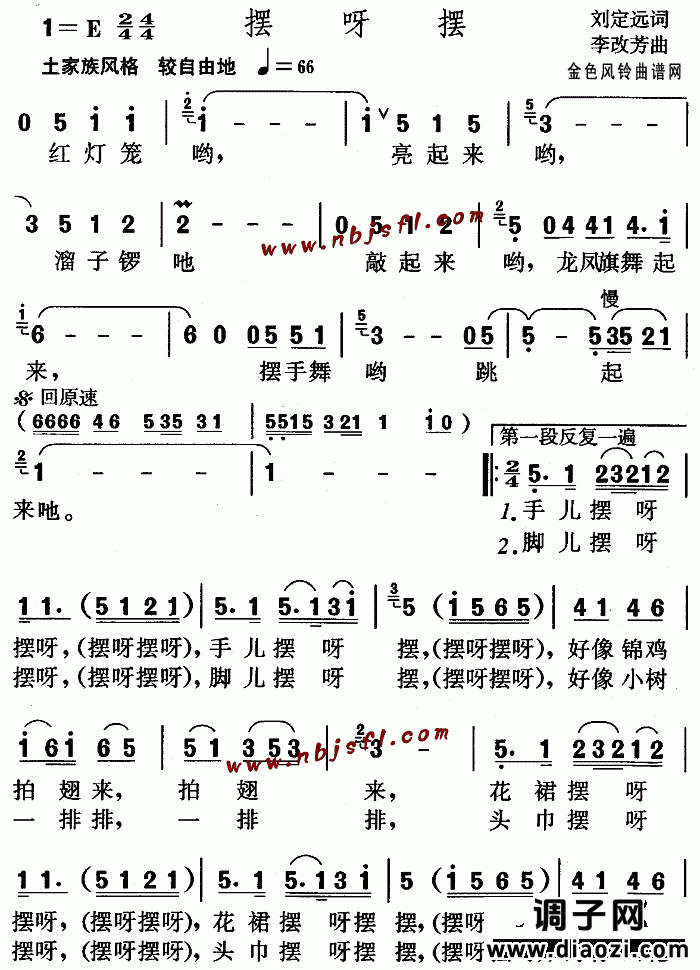 1=E 2/4 4/4 摆呀摆 刘定远词
李改芳曲
土家族风格 较自由地 ♩=66 金色风铃曲谱网
0 5 i i | i - - - | i ˅ 5 1 5 | 3 - - -
红灯笼 哟, 亮起来 哟,
3 5 1 2 | 2 - - - | 0 5 1 2 | 5 04 41 4. i
www.nbjsfl.com
溜子锣 吔 敲起来 哟, 龙凤旗舞起
慢
6 - - - | 6 0 05 51 | 3 - - 05 | 5 - 535 21
来, 摆手舞 哟 跳 起
回原速
( 6666 46 535 31 | 5515 321 1 i0 )
第一段反复一遍
1 - - - | 1 - - - ‖: 2/4 5. 1 23212
来吔。 1. 手儿摆 呀
2. 脚儿摆 呀
11. ( 5121 ) | 5. 1 5. 13i | 5 ( i565 ) | 41 46
摆呀, (摆呀摆呀), 手儿摆 呀 摆, (摆呀摆呀), 好像锦鸡
摆呀, (摆呀摆呀), 脚儿摆 呀 摆, (摆呀摆呀), 好像小树
i6i 65 | 51 353 | 3 - | 5. 1 23212
www.nbjsfl.com
拍翅来, 拍翅 来, 花裙摆 呀
一排排, 一排 排, 头巾摆 呀
11. ( 5121 ) | 5. 1 5. 13i | 5 ( i565 ) | 41 46
摆呀, (摆呀摆呀), 花裙摆 呀摆 摆, (摆呀
摆呀, (摆呀摆呀), 头巾摆 呀摆 摆, (摆呀
调子网
www.diaozi.com